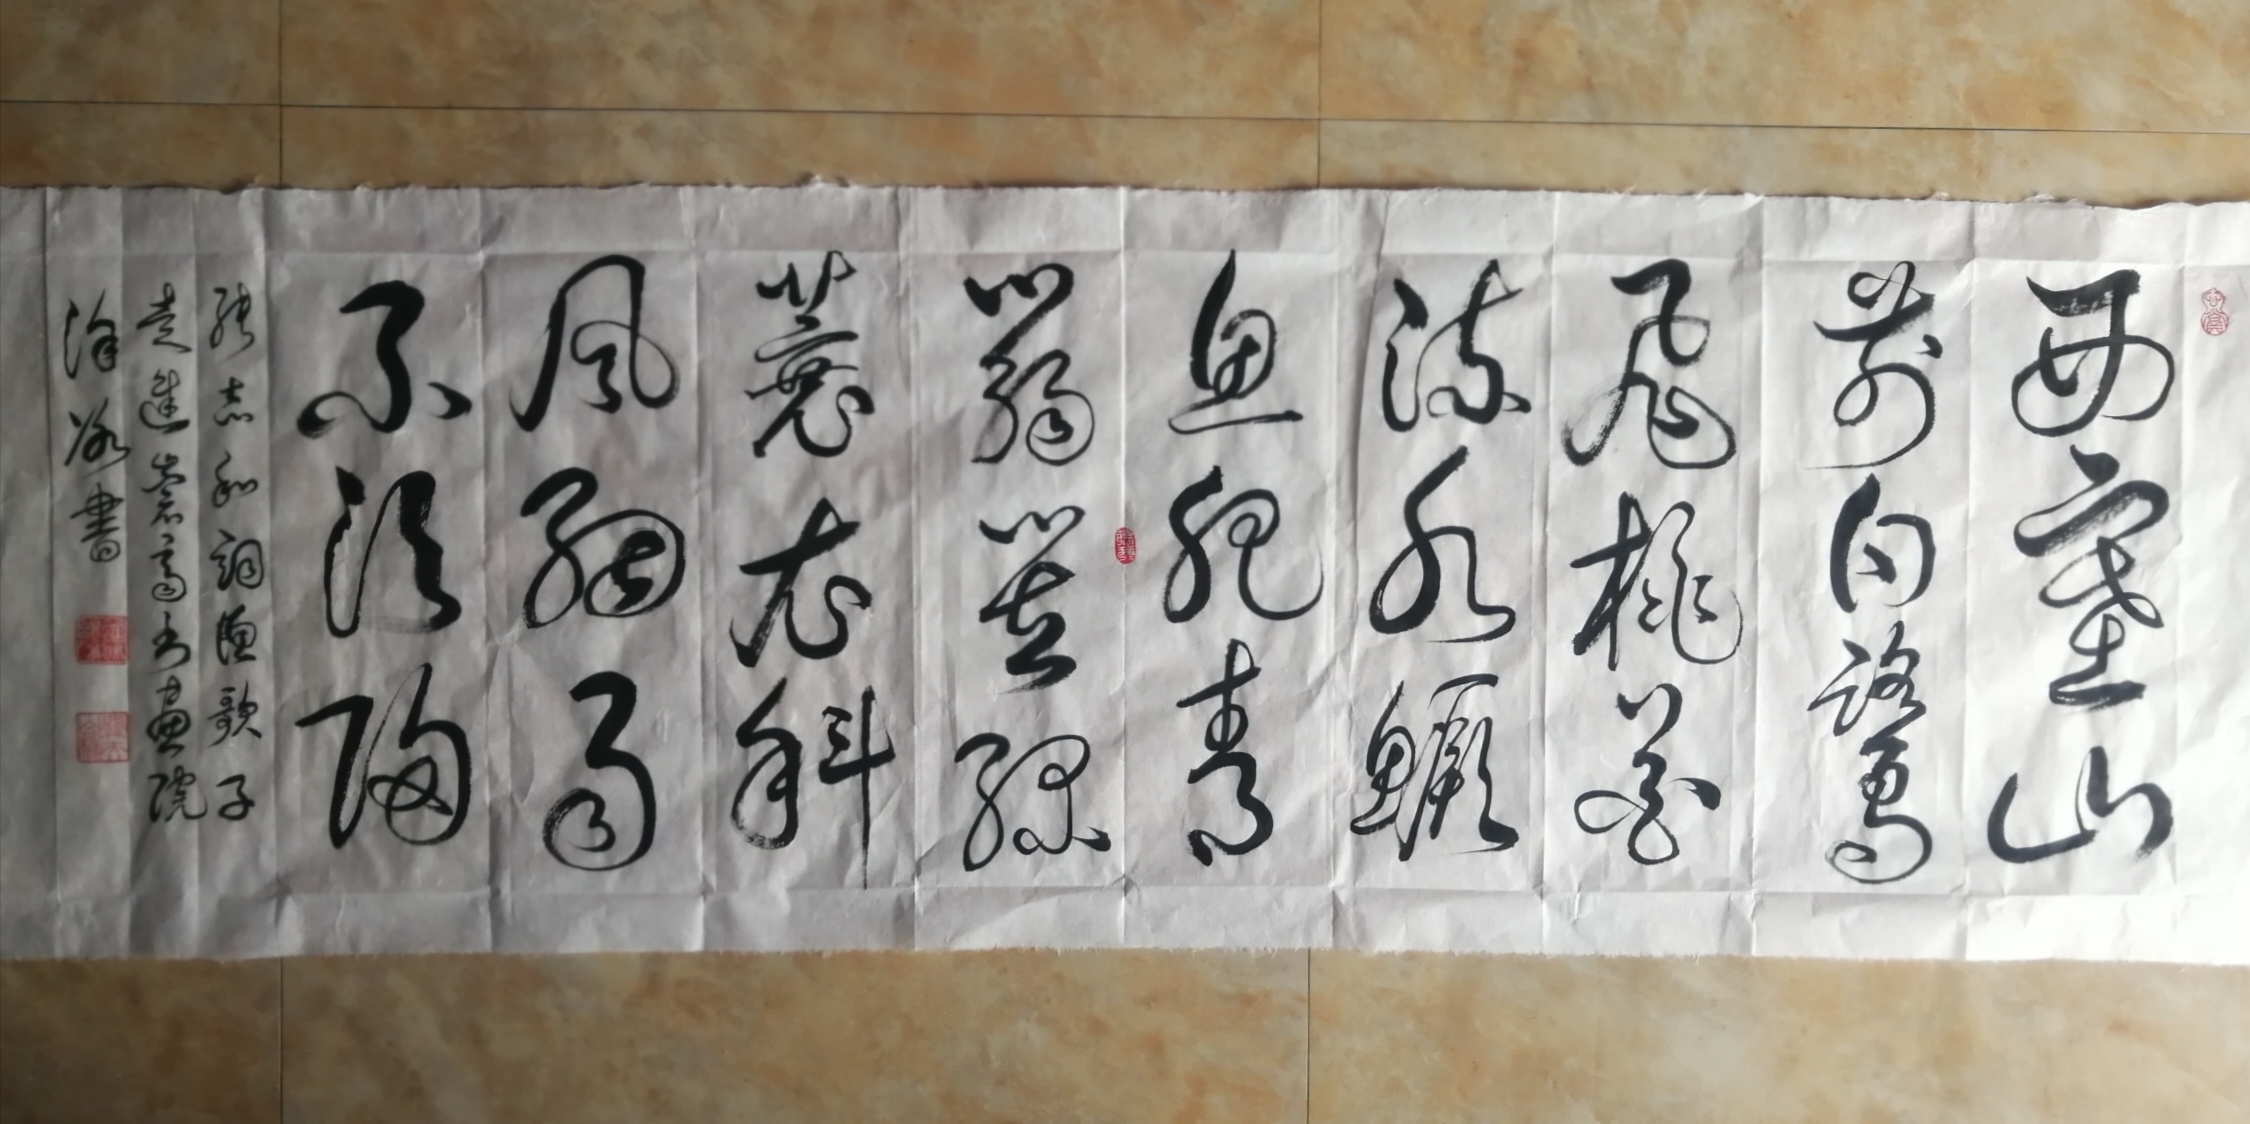 西塞山
前白鹭
飞桃花
流水鳜
鱼肥青
箬笠绿
蓑衣斜
风细雨
不须归
张志和词渔歌子
走进嵩高书画院
徐 书